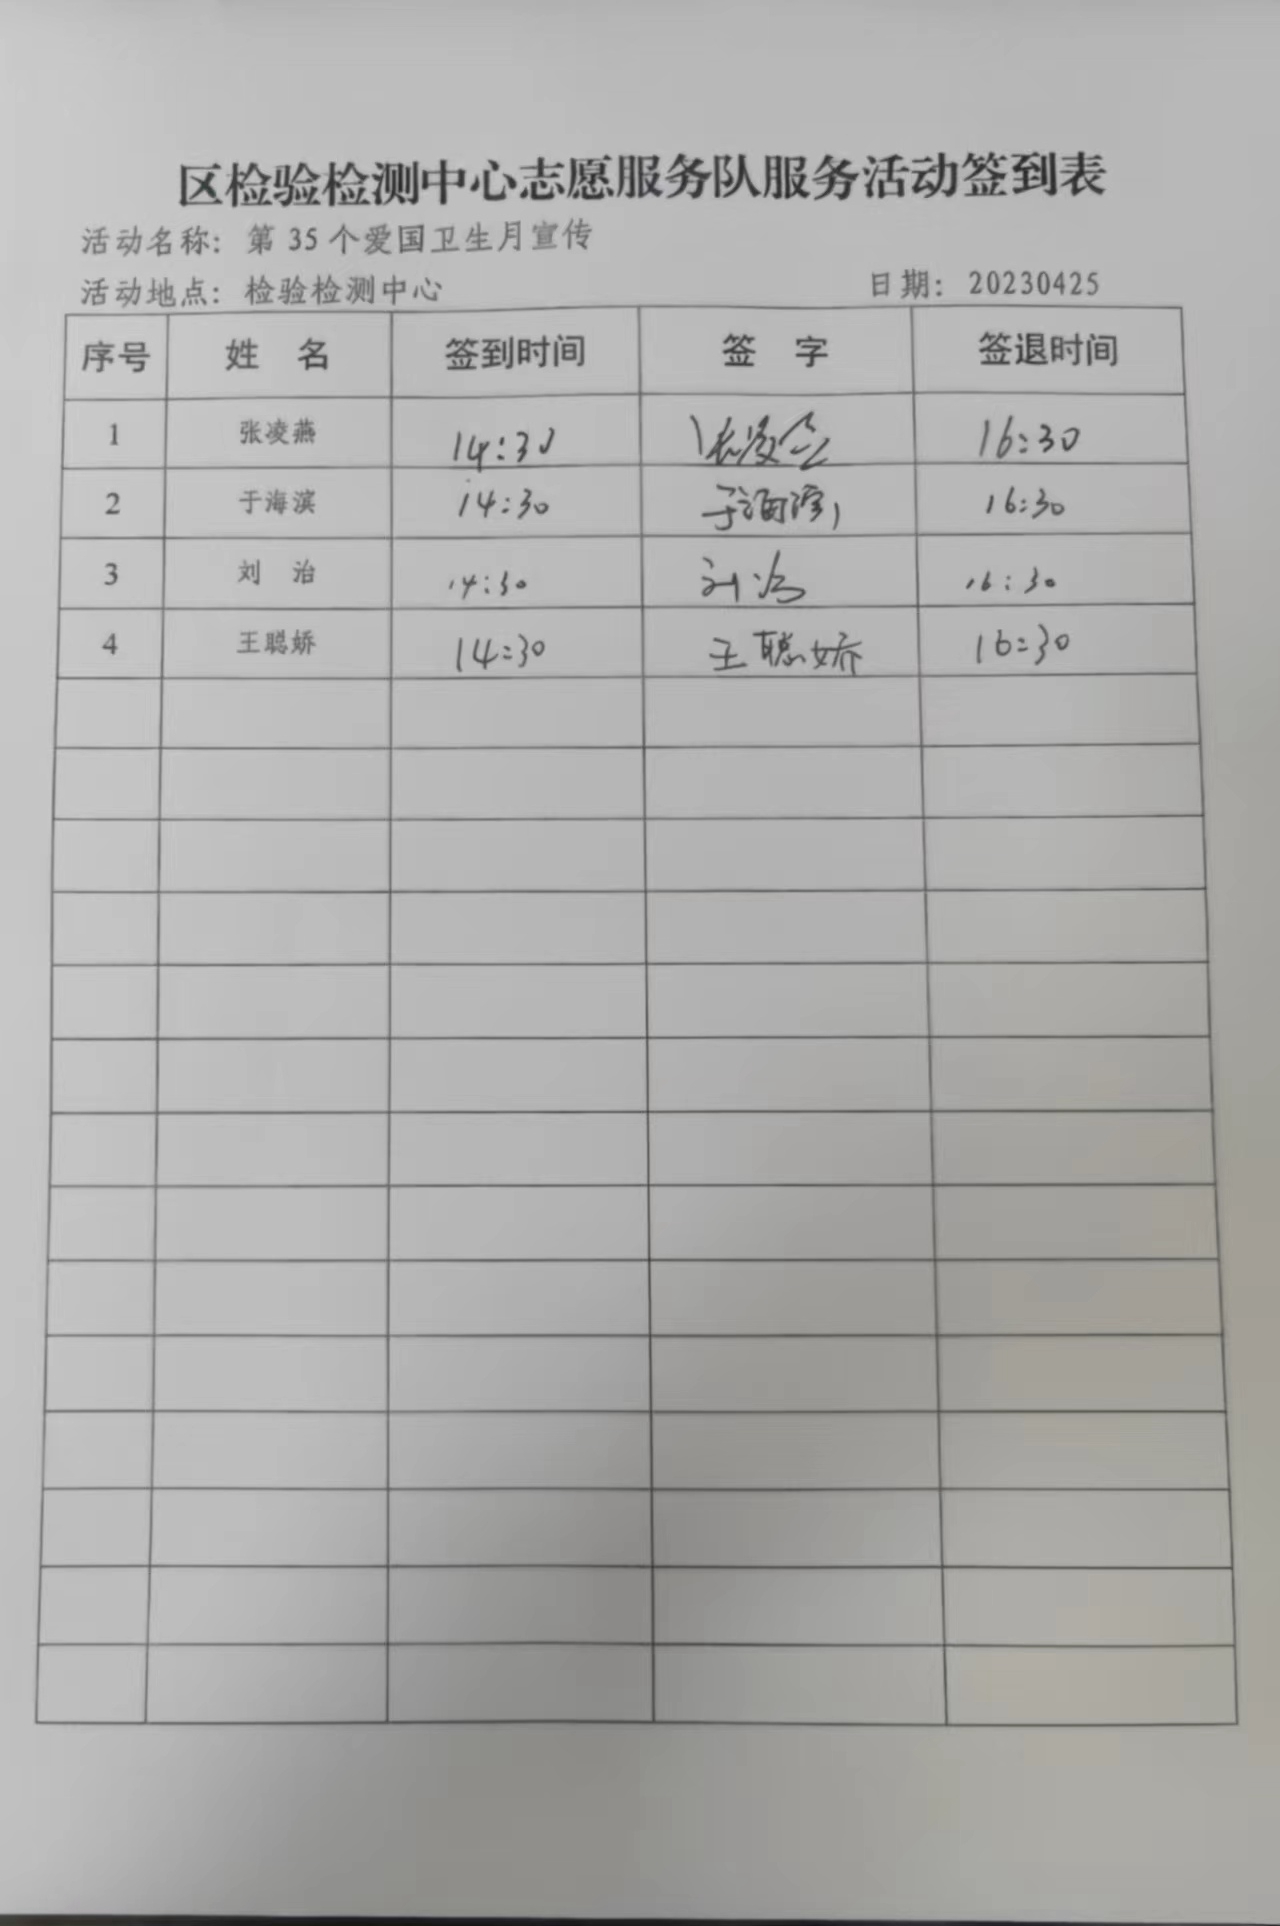 区检验检测中心志愿服务队服务活动签到表
活动名称: 第 35 个爱国卫生月宣传
活动地点: 检验检测中心 日期: 20230425
序号 姓 名 签到时间 签 字 签退时间
1 张凌燕 14:30 张凌燕 16:30
2 于海滨 14:30 于海滨 16:30
3 刘 治 14:30 刘治 16:30
4 王聪娇 14:30 王聪娇 16:30